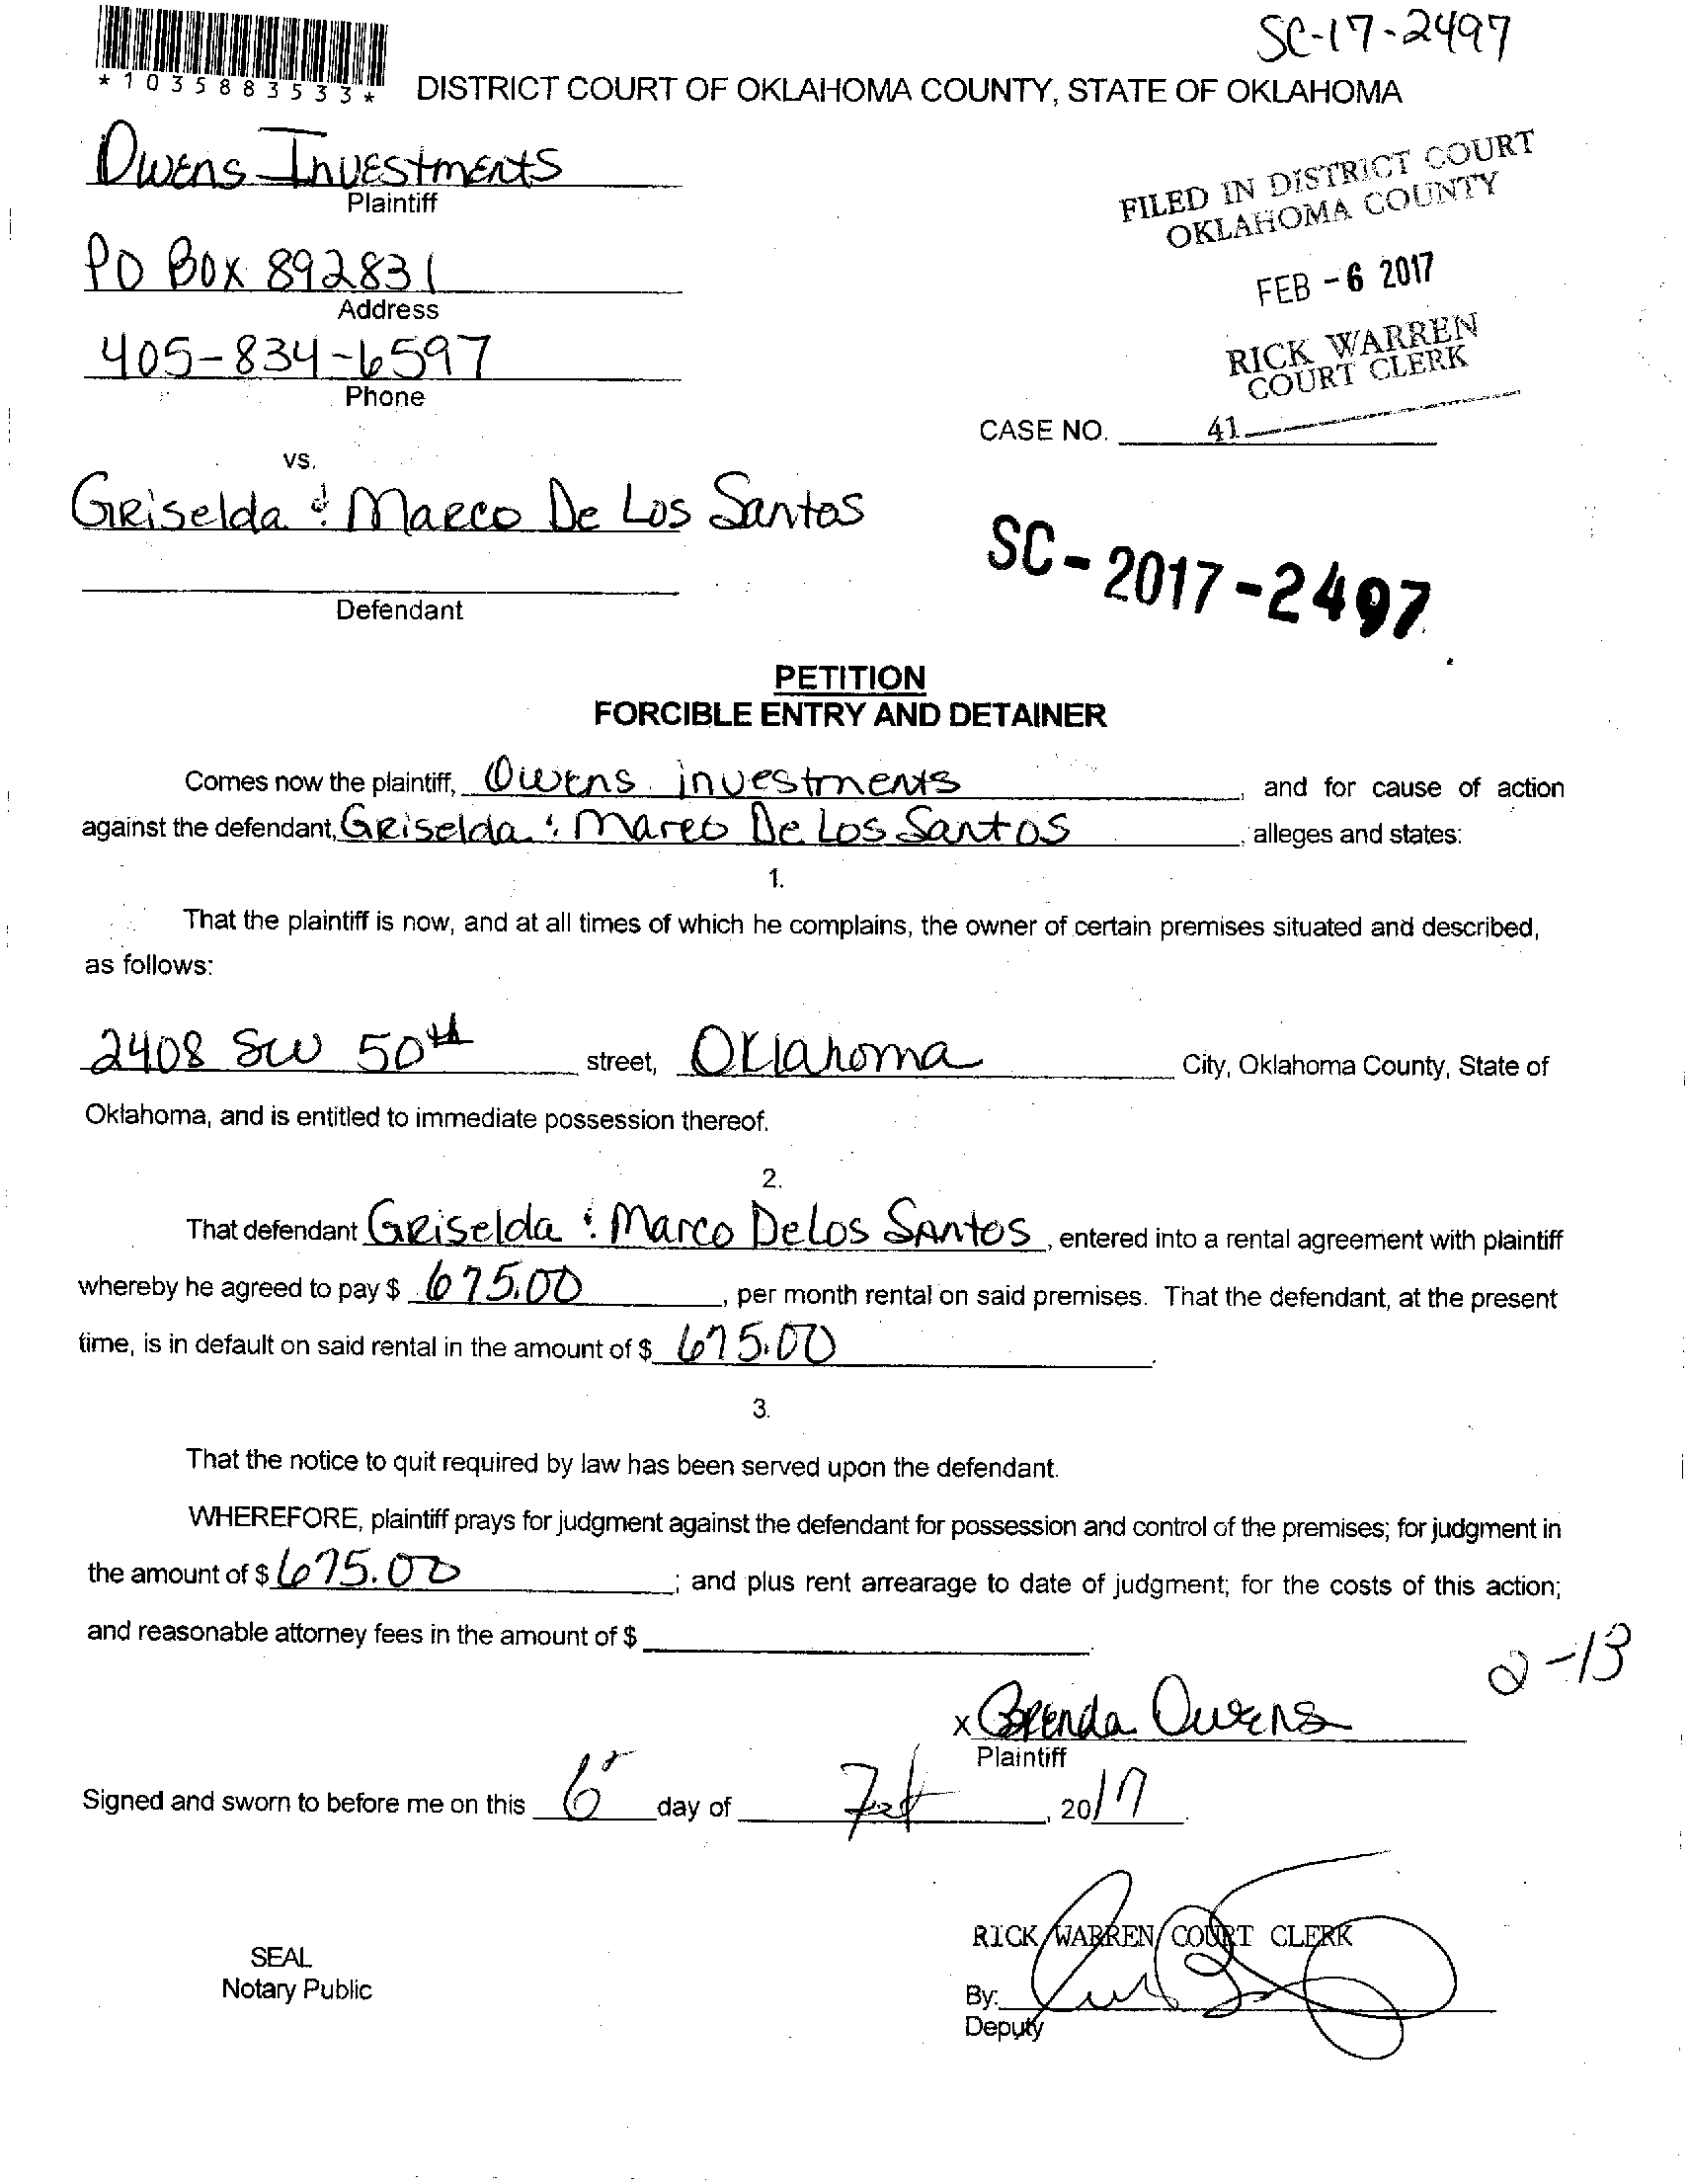 SC-17-2497
*1035883533*
DISTRICT COURT OF OKLAHOMA COUNTY, STATE OF OKLAHOMA
Owens Investments
Plaintiff
FILED IN DISTRICT COURT
OKLAHOMA COUNTY
PO Box 892831
Address
FEB -6 2017
405-834-6597
Phone
RICK WARREN
COURT CLERK
CASE NO. 41
vs.
Griselda & Marco De Los Santos
SC-2017-2497
Defendant
PETITION
FORCIBLE ENTRY AND DETAINER
Comes now the plaintiff, Owens investments, and for cause of action
against the defendant, Griselda & Marco De Los Santos, alleges and states:
1.
That the plaintiff is now, and at all times of which he complains, the owner of certain premises situated and described,
as follows:
2408 SW 50th street, Oklahoma City, Oklahoma County, State of
Oklahoma, and is entitled to immediate possession thereof.
2.
That defendant Griselda & Marco De Los Santos, entered into a rental agreement with plaintiff
whereby he agreed to pay $ 675.00, per month rental on said premises. That the defendant, at the present
time, is in default on said rental in the amount of $ 675.00.
3.
That the notice to quit required by law has been served upon the defendant.
WHEREFORE, plaintiff prays for judgment against the defendant for possession and control of the premises; for judgment in
the amount of $ 675.00; and plus rent arrearage to date of judgment; for the costs of this action;
and reasonable attorney fees in the amount of $.
2-13
x Brenda Owens
Plaintiff
Signed and sworn to before me on this 6 day of Feb, 2017.
RICK WARREN COURT CLERK
SEAL
Notary Public
By:
Deputy